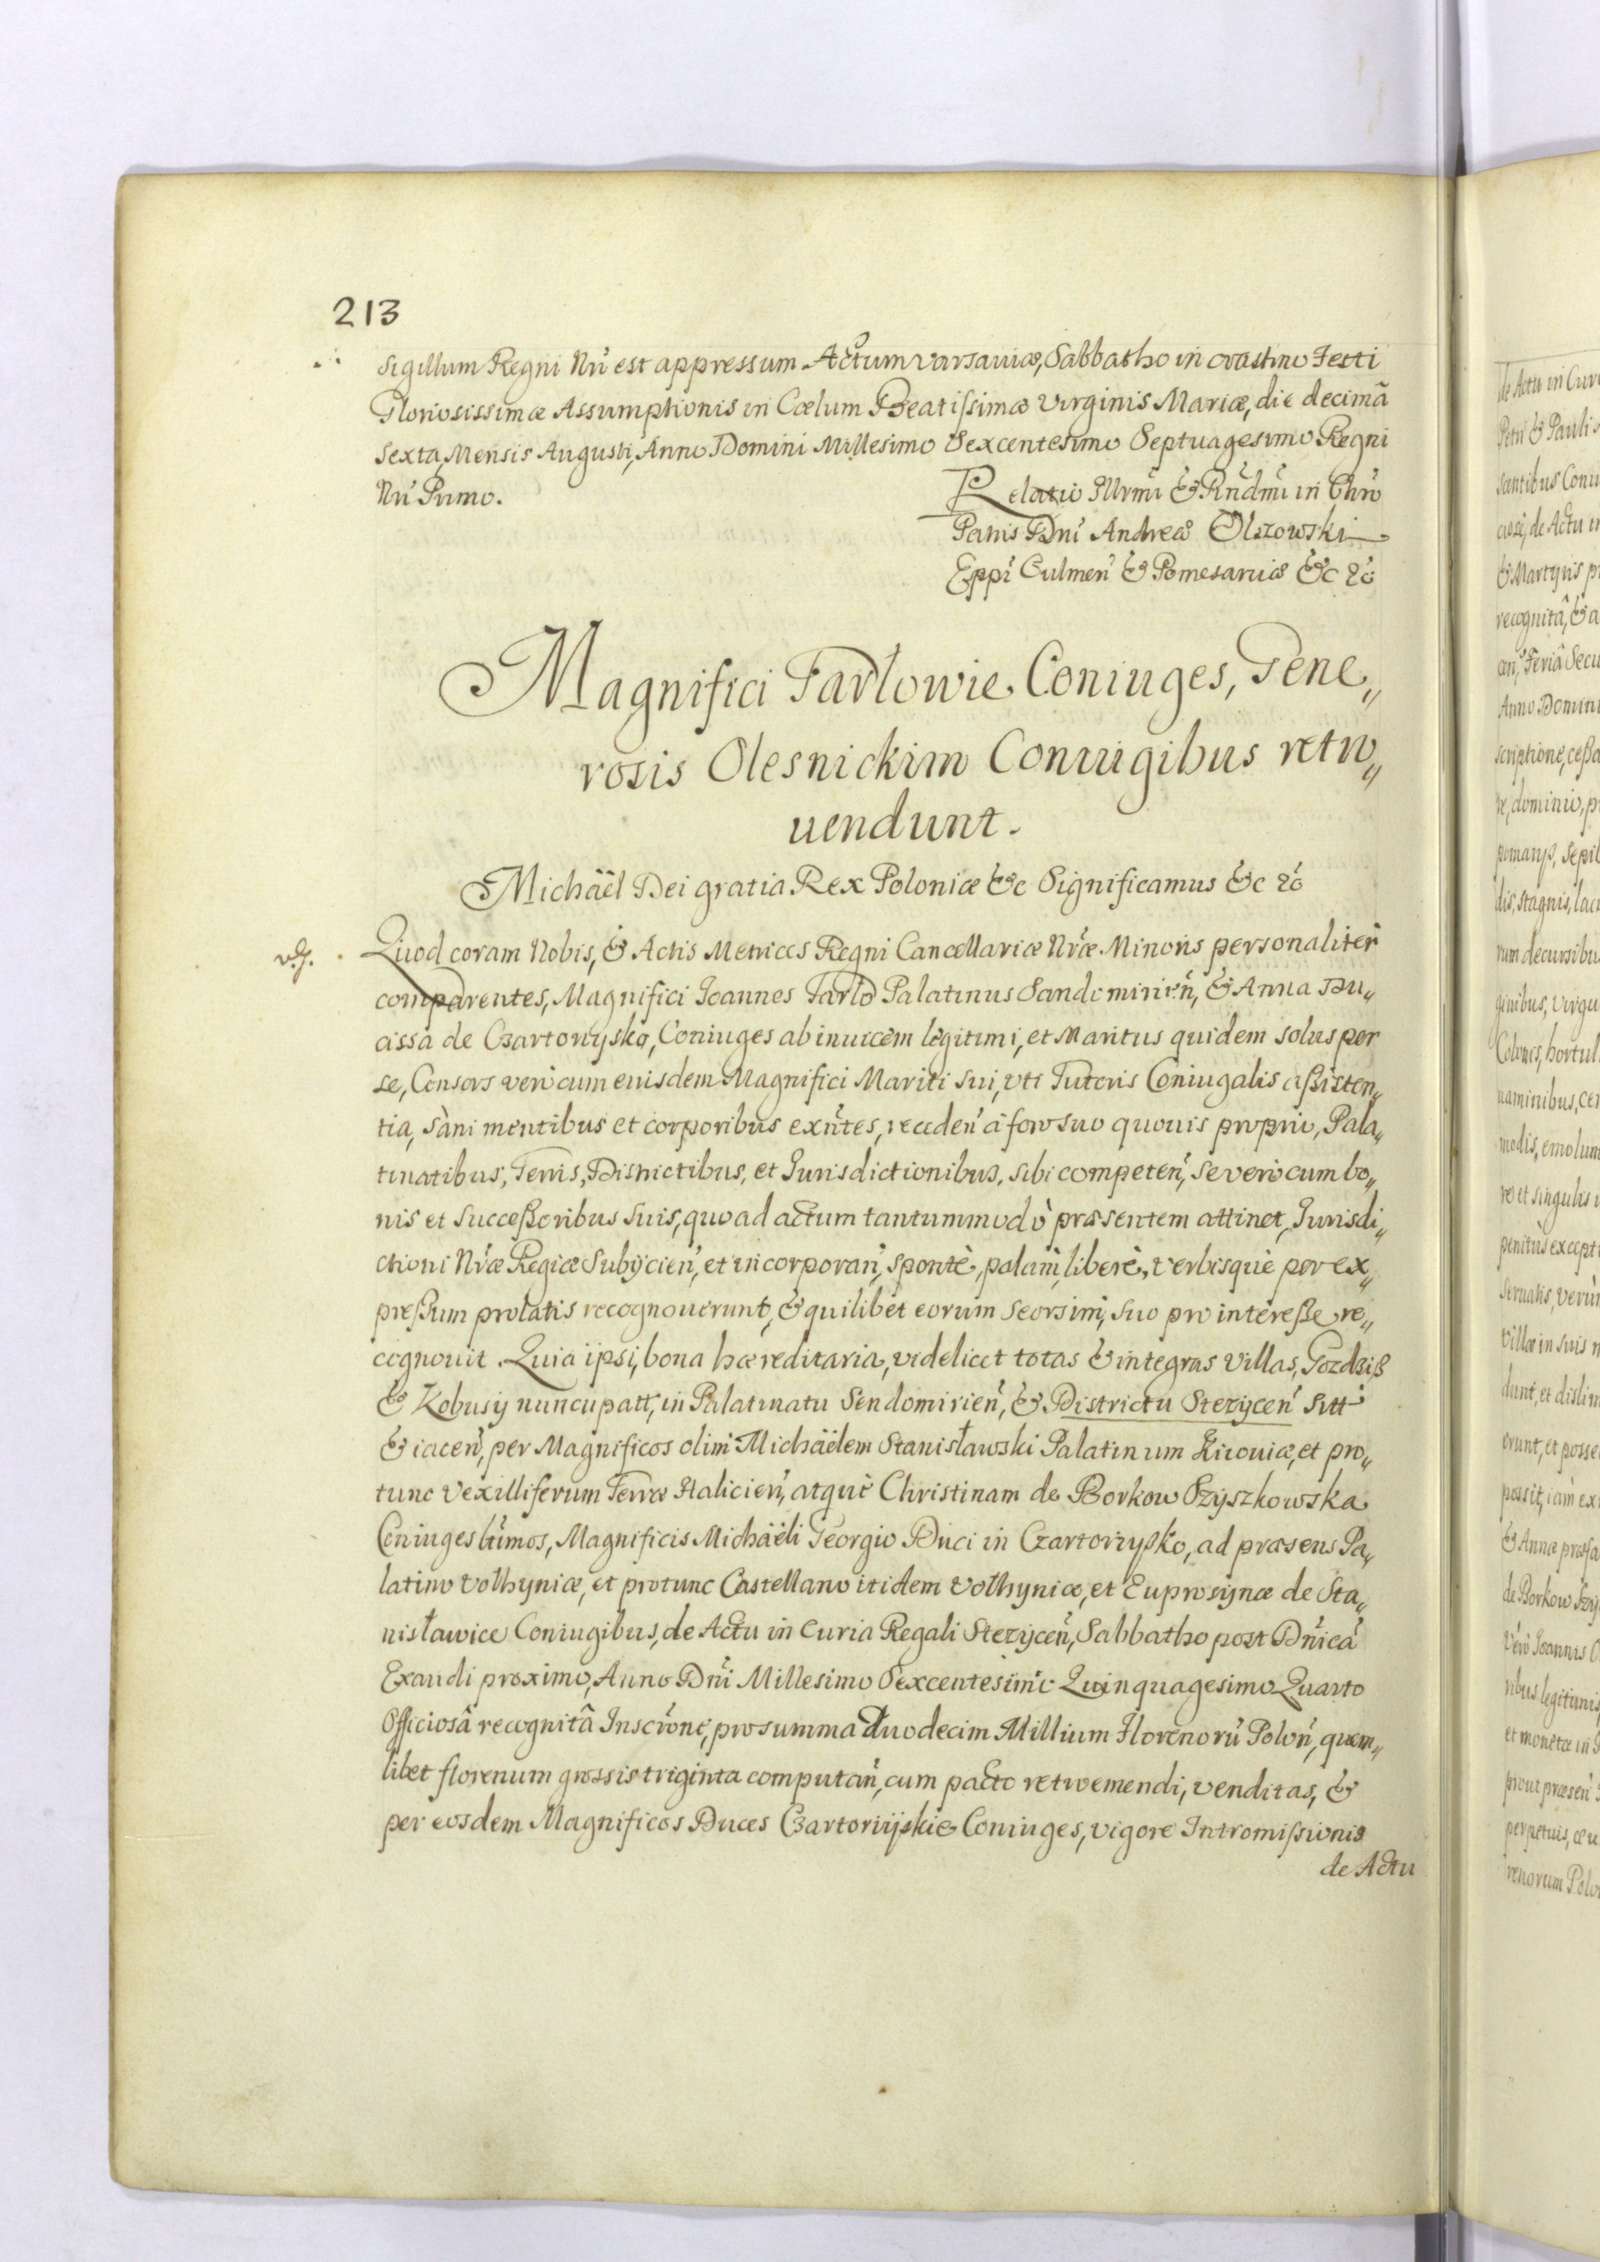 213
sigillum Regni Nri est appressum. Actum Varsaviæ, Sabbatho in crastino Festi
Gloriosissimæ Assumptionis in Cœlum Beatissimæ Virginis Mariæ, die decimâ
sexta, Mensis Augusti, Anno Domini Millesimo Sexcentesimo Septuagesimo Regni
Nri Primo.
Relatio Illrmi & Rndmi in Chro
Patris Dni Andreæ Olszowski
Eppi Culmen & Pomesaniæ &c &c
Magnifici Tarlowie Coniuges, Gene„
rosis Olesnickim Coniugibus retro„
uendunt.
Michäël Dei gratia Rex Poloniæ &c Significamus &c &c
Quod coram Nobis, & Actis Metrices Regni Cancellariæ Nræ Minoris personaliter
comparentes, Magnifici Joannes Tarlo Palatinus Sandomirien, & Anna Du„
cissa de Czartoryska, Coniuges ab inuicem legitimi, et Maritus quidem solus per
se, Consors verò cum eiusdem Magnifici Mariti sui, vti Tutoris Coniugalis assisten„
tia, sani mentibus et corporibus exntes, receden à foro suo quouis proprio, Pala„
tinatibus, Terris, Districtibus, et Jurisdictionibus, sibi competen, se verò cum bo„
nis et successoribus suis, quo ad actum tantummodò præsentem attinet, Jurisdi„
ctioni Nræ Regiæ Subijcien, et incorporan, spontè, palàm, liberè, verbisquè per ex„
pressum prolatis recognouerunt, & quilibet eorum seorsim, suo pro interesse re„
cognouit. Quia ipsi, bona hæreditaria, videlicet totas & integras Villas, Gozdziß
& Kobusij nuncupatt, in Palatinatu Sendomirien, & Districtu Stezycen sitt
& iacen, per Magnificos olim Michäëlem Stanisławski Palatinum Kiouiæ, et pro„
tunc Vexilliferum Terræ Halicien, atquè Christinam de Borkow Szyszkowska
Coniuges ltimos, Magnificis Michäëli Georgio Duci in Czartoryßko, ad præsens Pa„
latino Volhyniæ, et protunc Castellano itidem Volhyniæ, et Euprosynæ de Sta„
nisławice Coniugibus, de Actu in Curia Regali Stezycen, Sabbatho post Dnicã
Exaudi proximo, Anno Dni Millesimo Sexcentesimo Quinquagesimo Quarto
Officiosâ recognitâ Inscrone, pro summa duodecim Millium Florenorũ Polon, quem„
libet florenum grossis triginta computan, cum pacto retroemendi, venditas, &
per eosdem Magnificos Duces Czartoryiskie Coniuges, vigore Intromissionis
de Actu